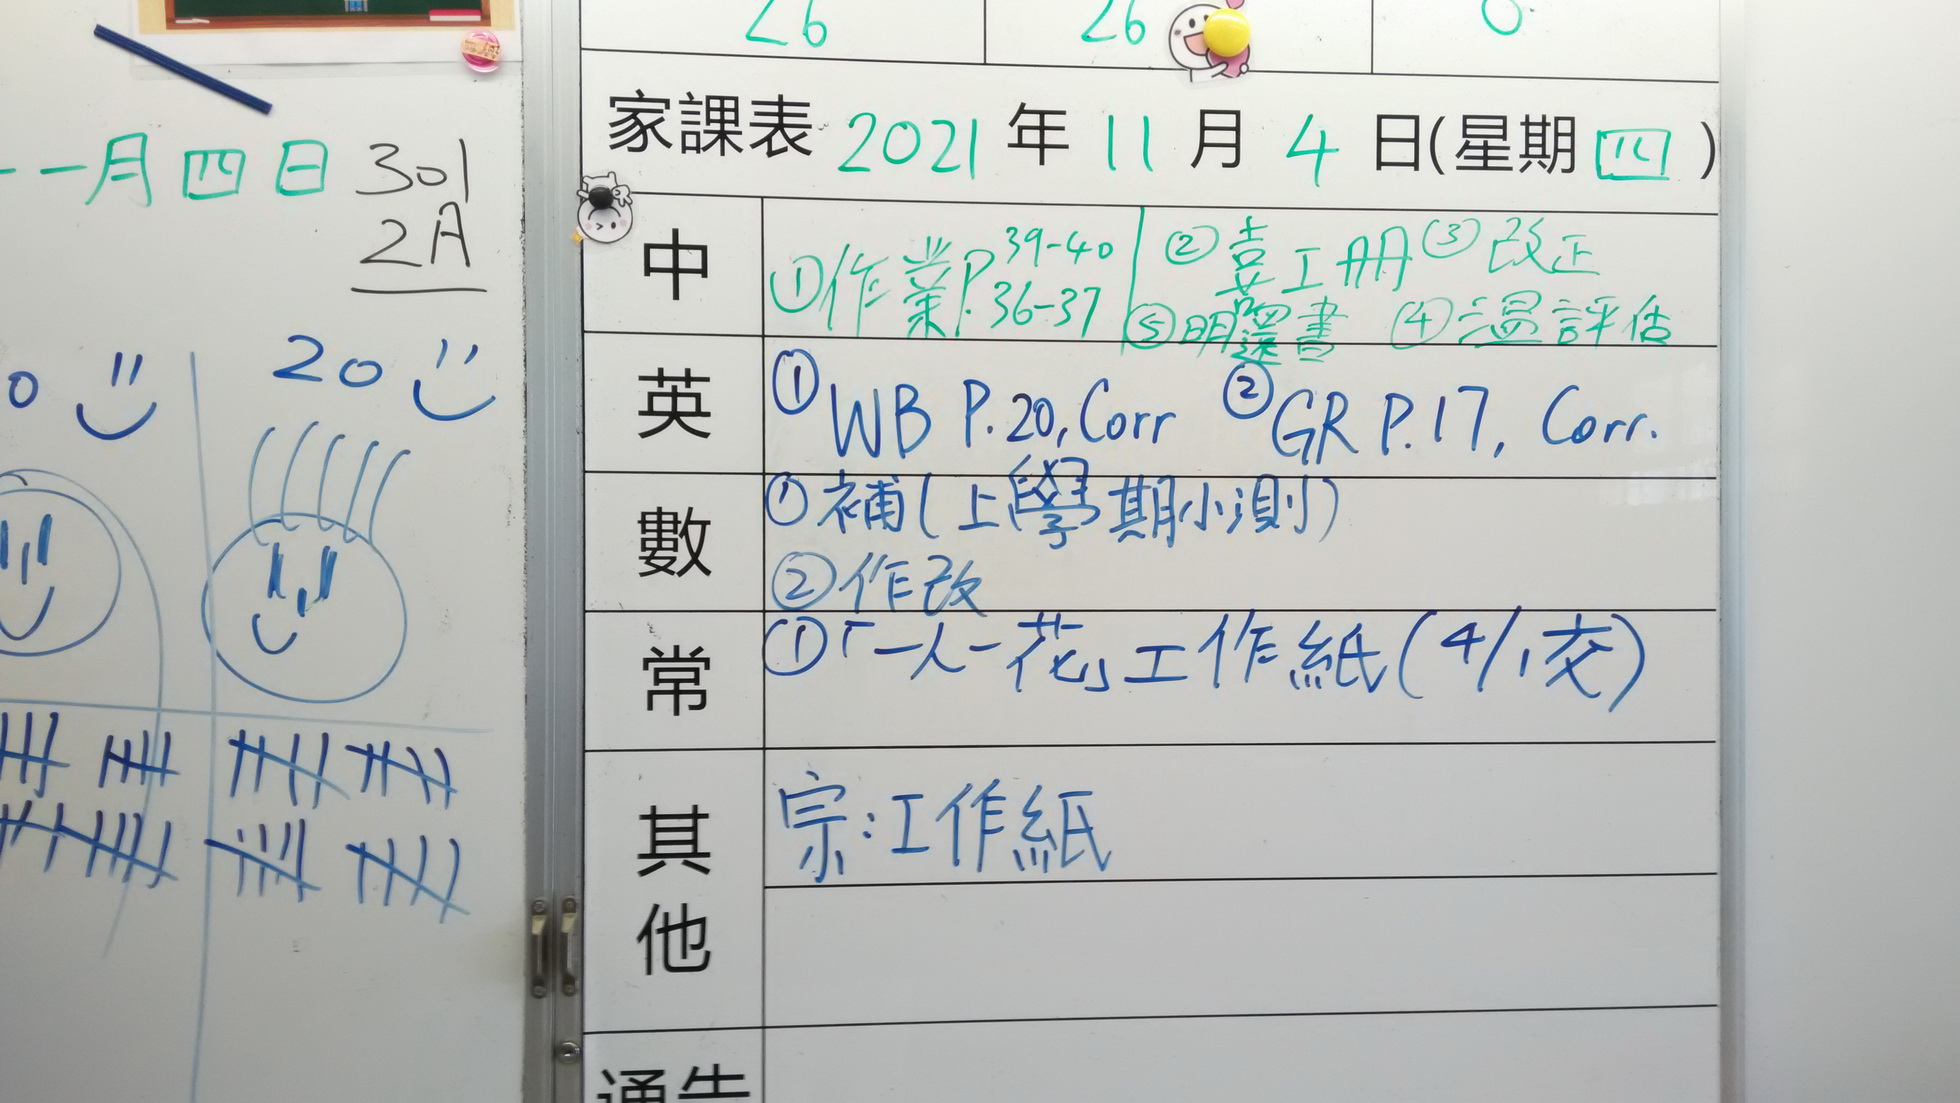 26 26 0
家課表 2021 年 11 月 4 日(星期 四 )
一月四日 301
2A
中 ①作業P. 39-40 36-37 ② 工冊 ③改正
⑤明選書 ④溫評估
0
20
英 ①WB P.20, Corr ②GR P.17, Corr.
數 ①補(上學期小測)
②作改
常 ①「一人一花」工作紙(4/11交)
其他 宗:工作紙
通告